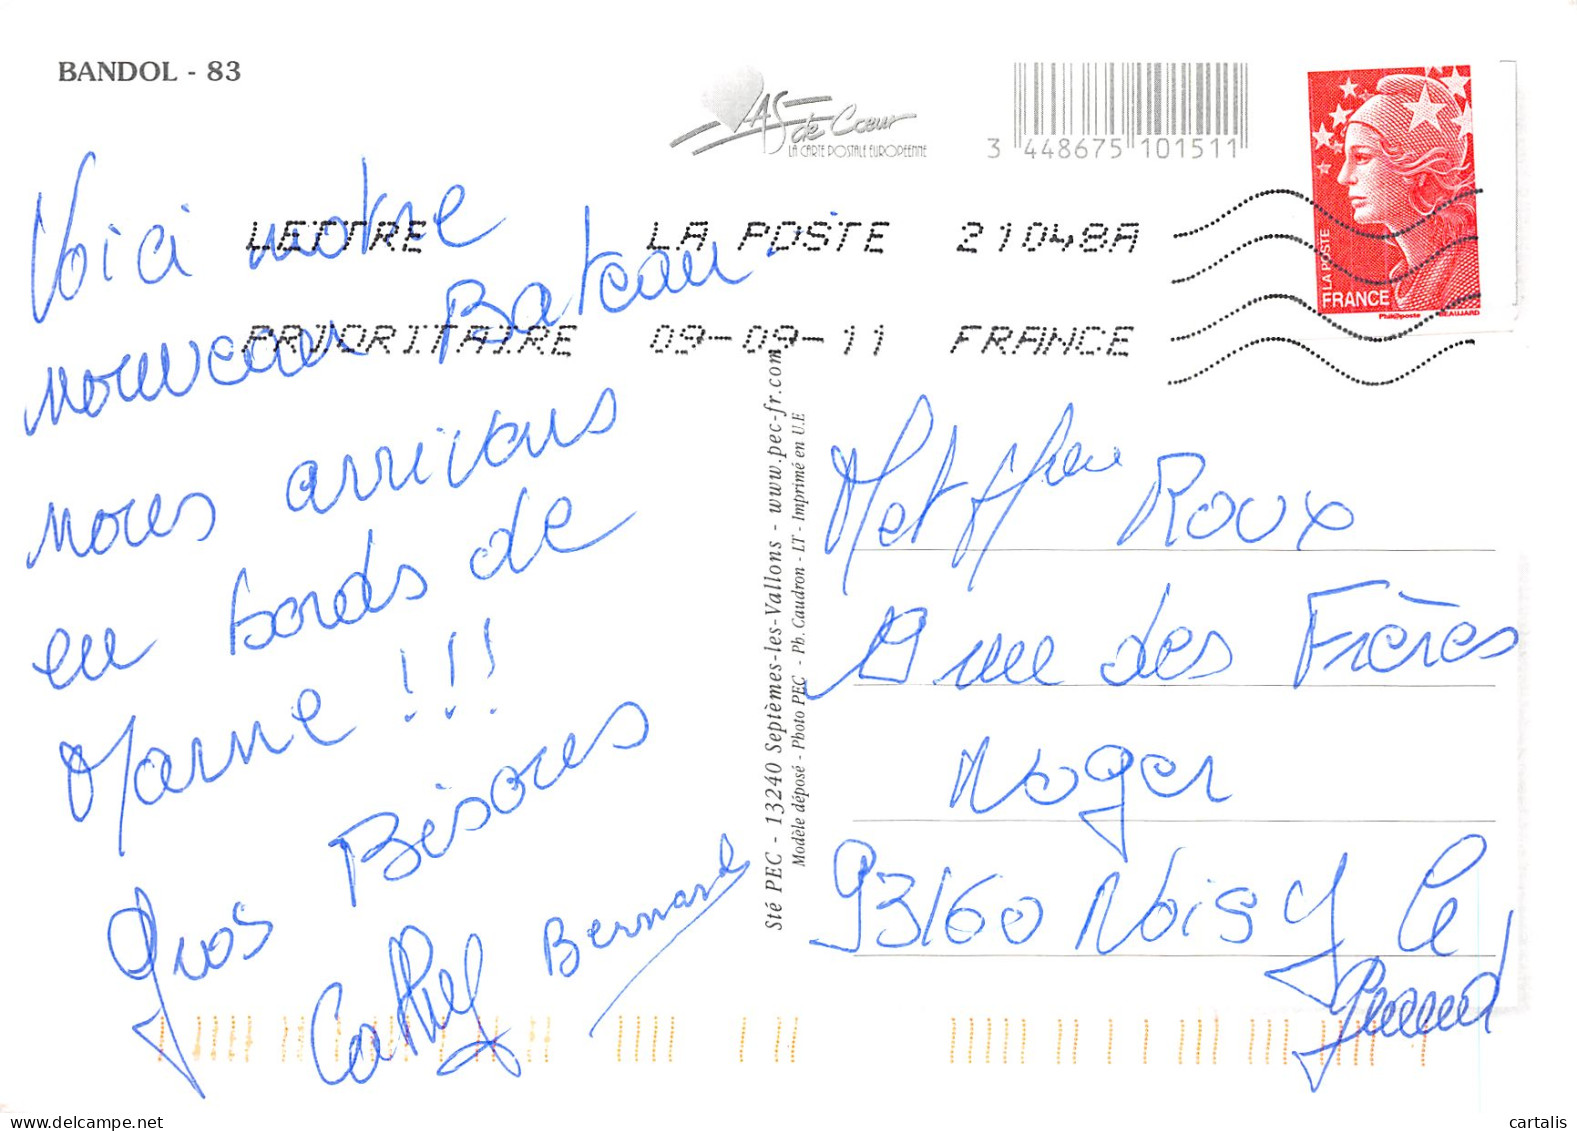 BANDOL - 83
AS de Cœur
LA CARTE POSTALE EUROPÉENNE
3 448675 101511
LETTRE LA POSTE 21048A
PRIORITAIRE 09-09-11 FRANCE
LA POSTE
FRANCE
Phil@poste BEAUJARD
Voici notre
nouveau Bateau
nous arrivons
en bords de
Marne !!!
Gros Bisous
Cathy Bernard
Sté PEC - 13240 Septèmes-les-Vallons - www.pec-fr.com
Modèle déposé - Photo PEC - Ph. Caudron - LT - Imprimé en U.E
M et Mme Roux
rue des Frères
Noger
93160 Noisy le
Grand
cartalis